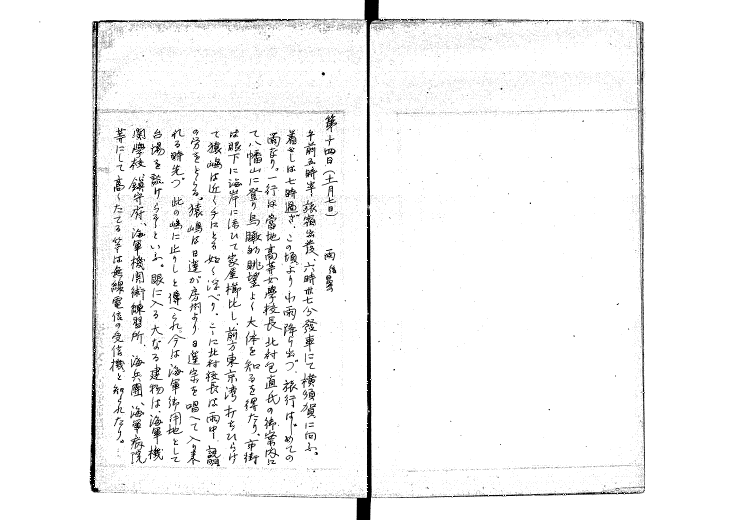 第十四日(十一月七日) 雨後曇
午前五時半旅宿出發、六時卅七分發車にて横須賀に向ふ。
着せしは七時過ぎ、この頃より小雨降り出づ、旅行はじめての
雨なり。一行は當地高等女學校長北村包直氏の御案内に
て八幡山に登り鳥瞰的眺望よく大体を知るを得たり。市街
は眼下に海岸に沿ひて家屋櫛比し前方東京湾打ちひらけ
て猿嶋は近く手にとる如く浮べり。こゝに北村校長は雨中説明
の労をとらる。猿嶋は日蓮が房州より日蓮宗を唱へて入り来
れる時先づ此の嶋に止りしと傳へられ、今は海軍御用地として
台場を設けらるといふ。眼に入る大なる建物は、海軍機
関學校、鎮守府、海軍機関術練習所、海兵團、海軍病院
等にして高くたてる竿は無線電信の受信機と知られたり。